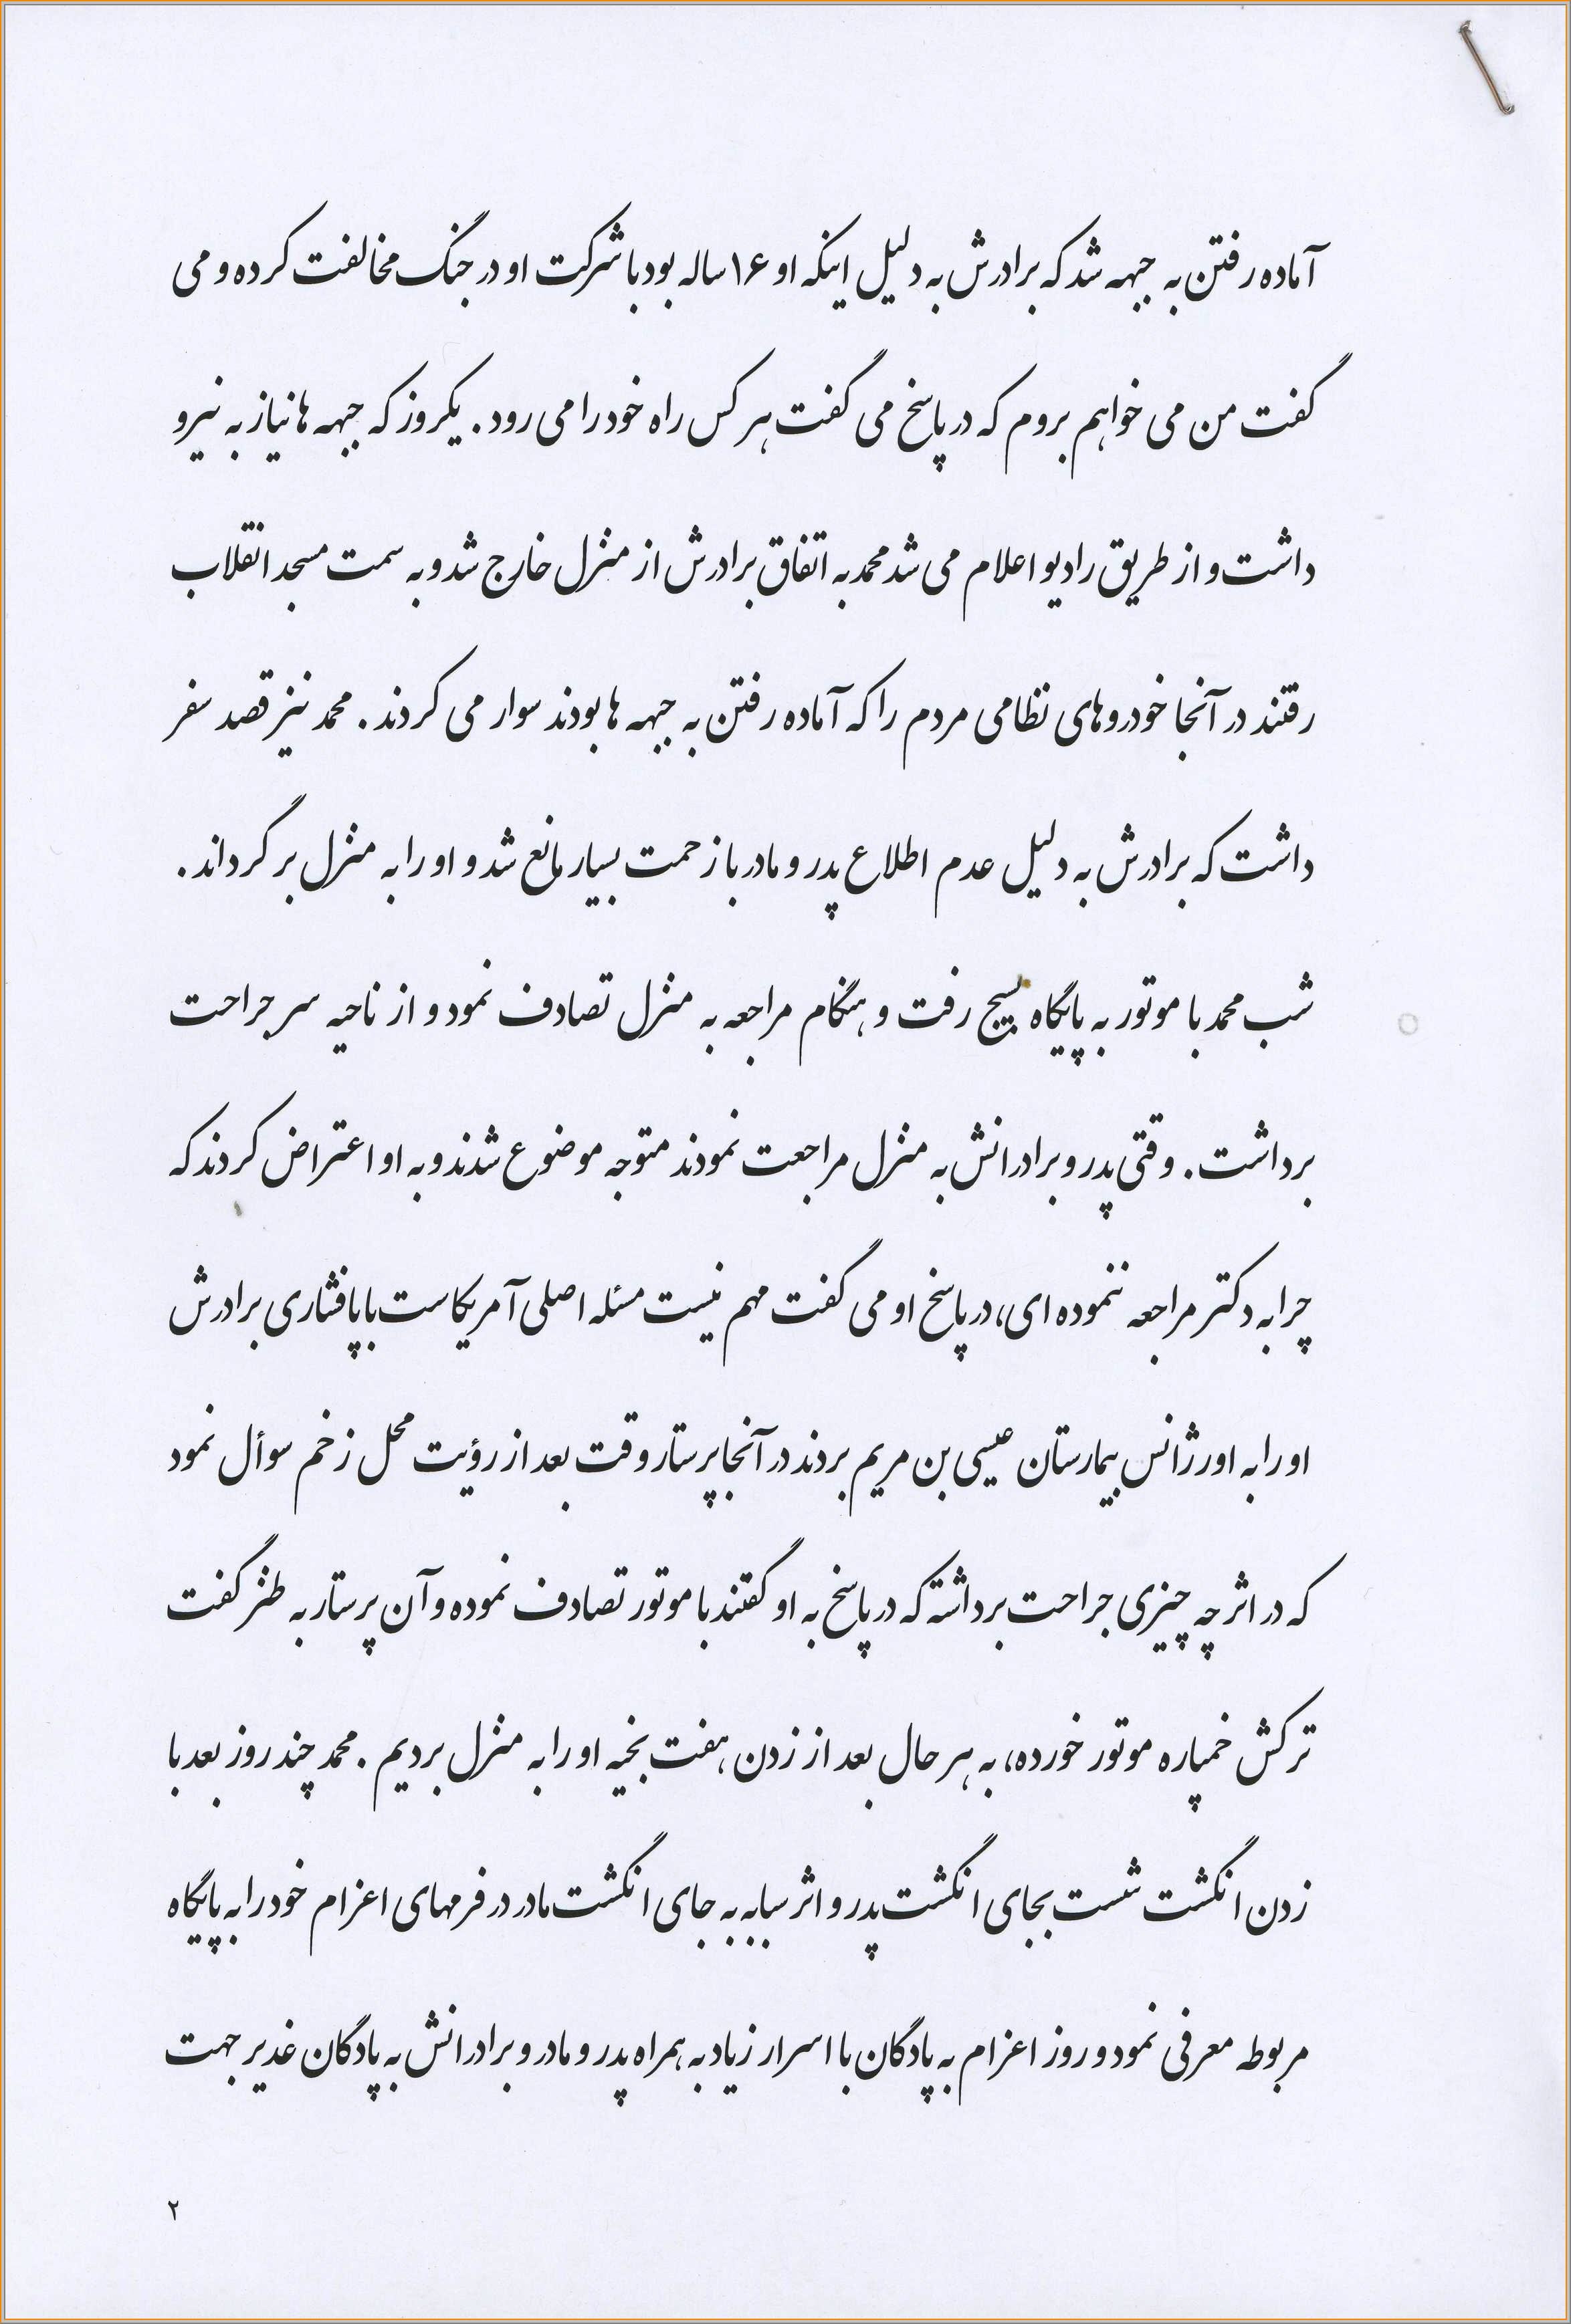 آماده رفتن به جبهه شد که برادرش به دلیل اینکه او ۱۶ ساله بود با شرکت او در جنگ مخالفت کرده و می
گفت من می خواهم بروم که در پاسخ می گفت هر کس راه خود را می رود. یکروز که جبهه ها نیاز به نیرو
داشت و از طریق رادیو اعلام می شد محمد به اتفاق برادرش از منزل خارج شد و به سمت مسجد انقلاب
رفتند در آنجا خودروهای نظامی مردم را که آماده رفتن به جبهه ها بودند سوار می کردند. محمد نیز قصد سفر
داشت که برادرش به دلیل عدم اطلاع پدر و مادر با زحمت بسیار مانع شد و او را به منزل بر گرداند.
شب محمد با موتور به پایگاه بسیج رفت و هنگام مراجعه به منزل تصادف نمود و از ناحیه سر جراحت
برداشت. وقتی پدر و برادرانش به منزل مراجعت نمودند متوجه موضوع شدند و به او اعتراض کردند که
چرا به دکتر مراجعه ننموده ای، در پاسخ او می گفت مهم نیست مسئله اصلی آمریکاست با پافشاری برادرش
او را به اورژانس بیمارستان عیسی بن مریم بردند در آنجا پرستار وقت بعد از رؤیت محل زخم سوأل نمود
که در اثر چه چیزی جراحت برداشته که در پاسخ به او گفتند با موتور تصادف نموده و آن پرستار به طنز گفت
ترکش خمپاره موتور خورده، به هر حال بعد از زدن هفت بخیه او را به منزل بردیم. محمد چند روز بعد با
زدن انگشت شست بجای انگشت پدر و اثر سبابه به جای انگشت مادر در فرمهای اعزام خود را به پایگاه
مربوطه معرفی نمود و روز اعزام به پادگان با اسرار زیاد به همراه پدر و مادر و برادرانش به پادگان غدیر جهت
۲